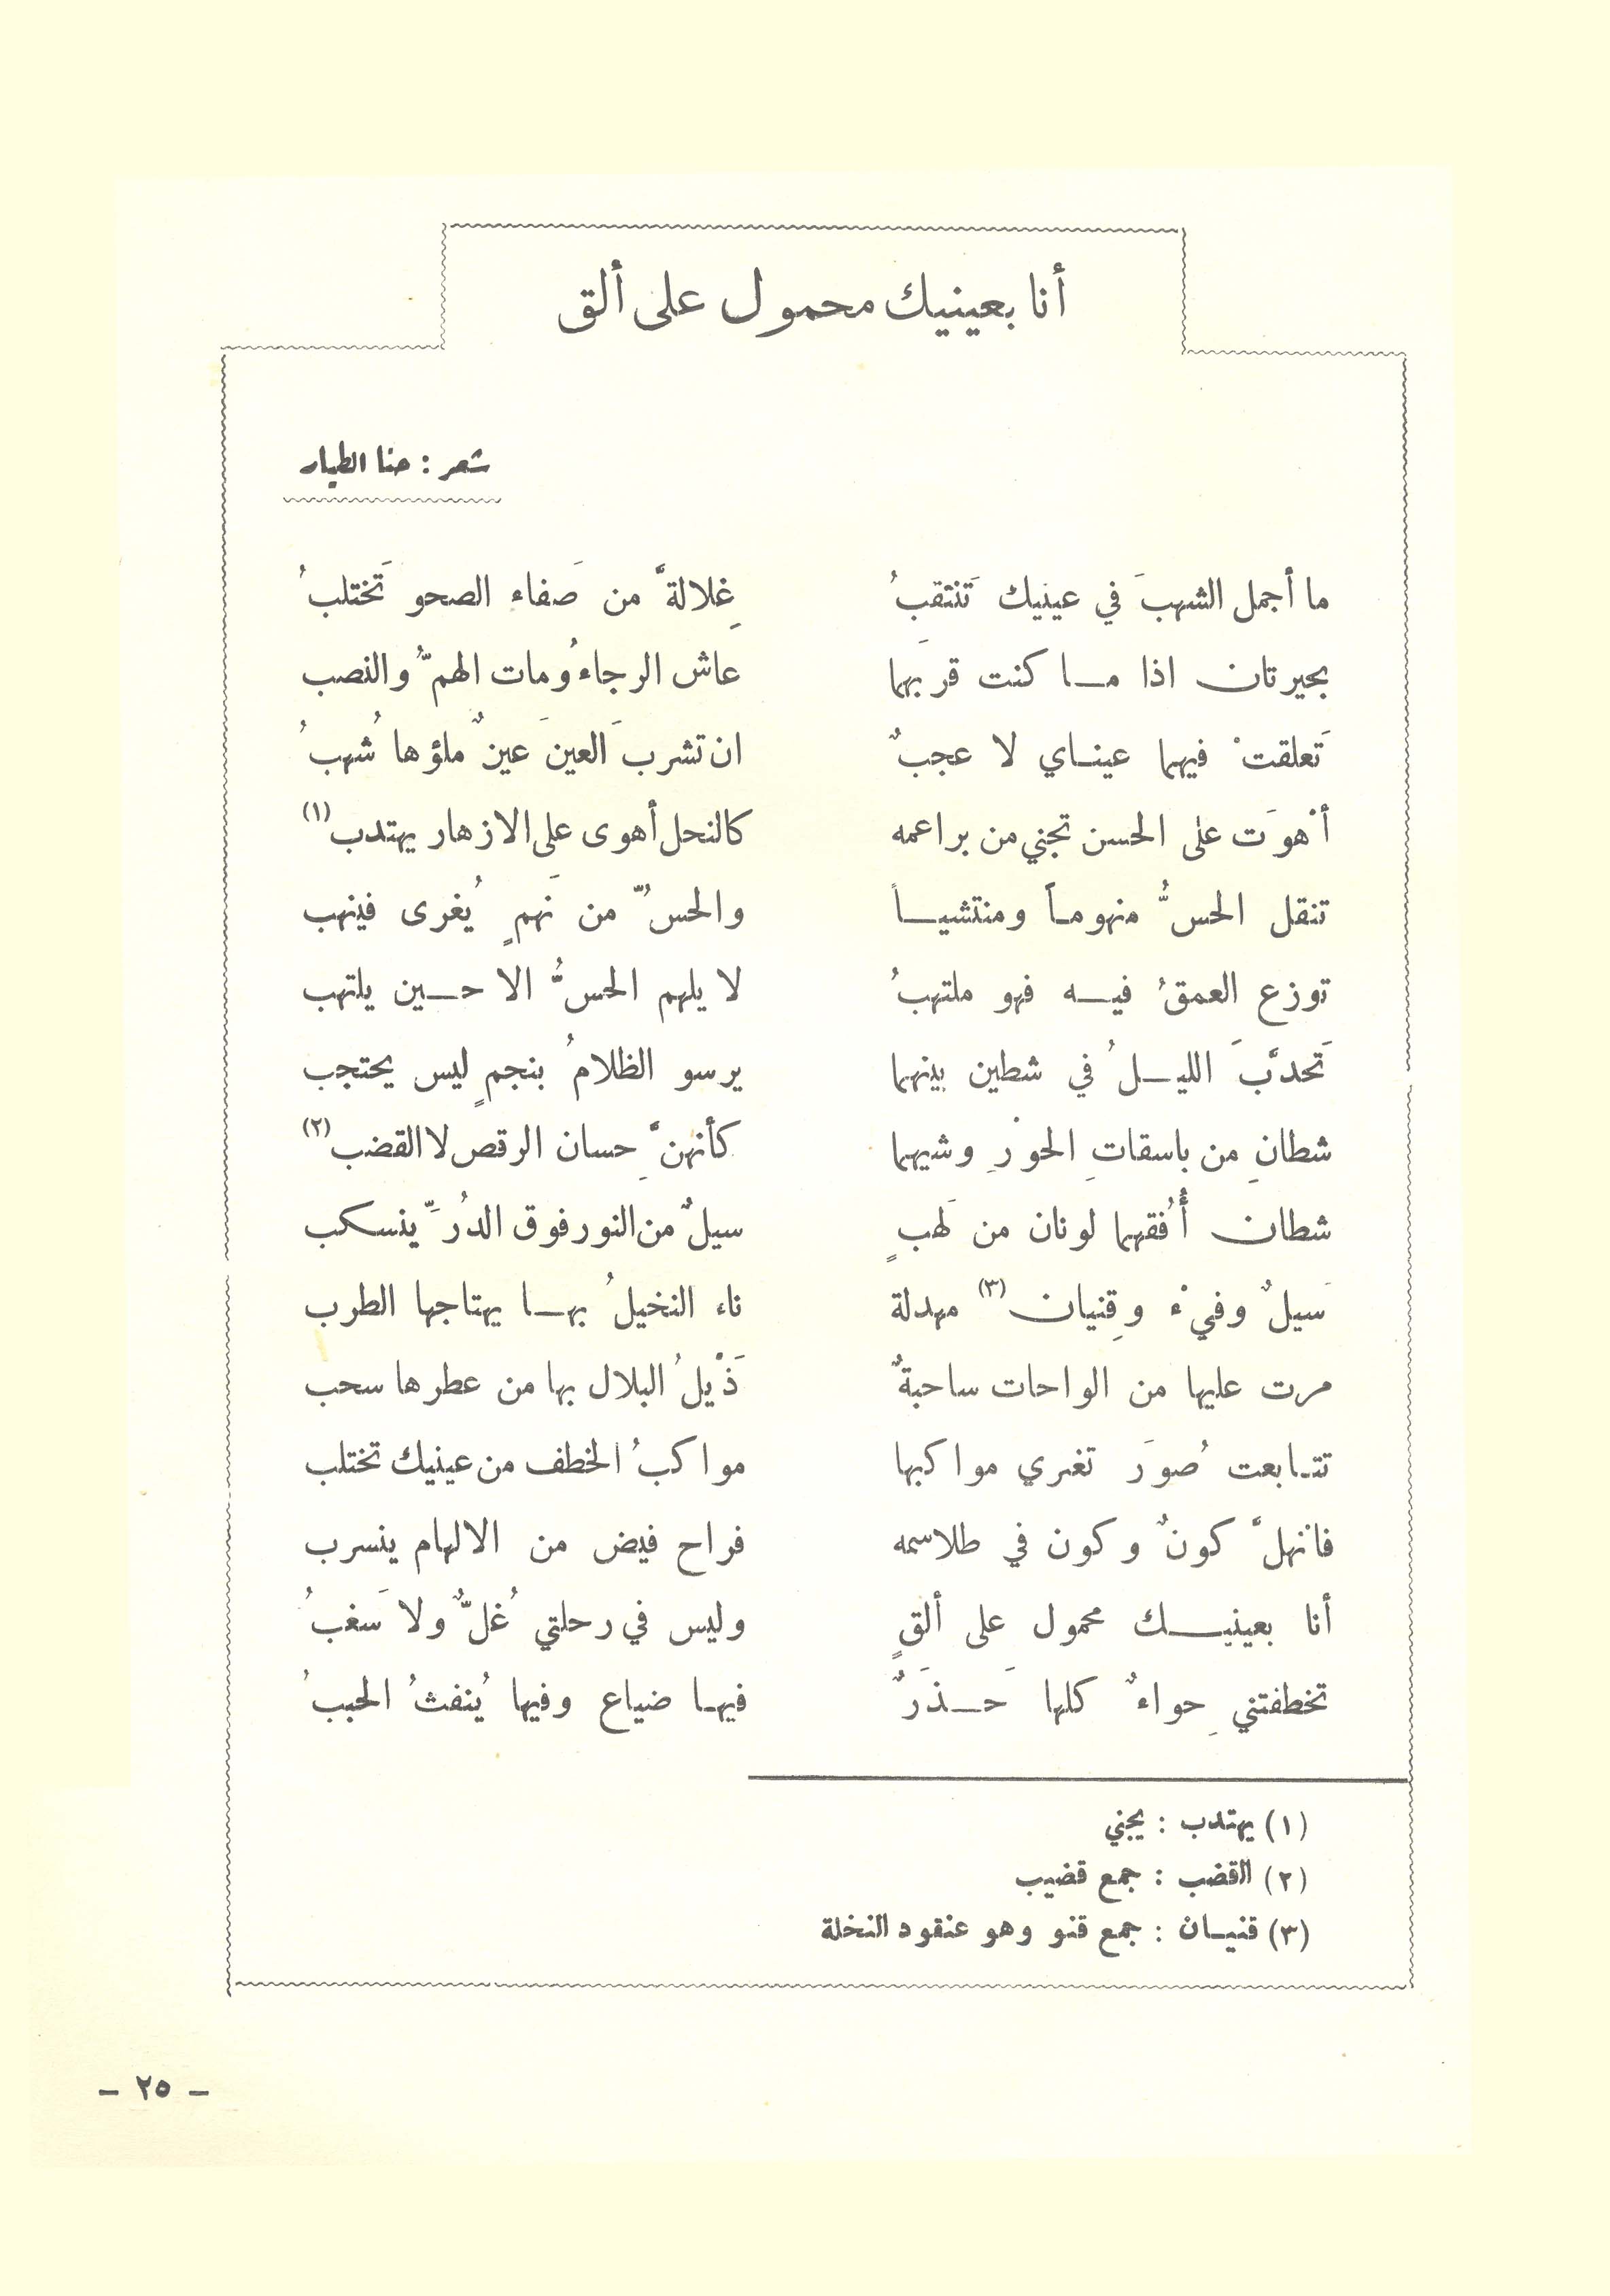 أنا بعينيك محمول على ألق
شعر : حنا الطيار
ما أجمل الشهبَ في عينيك تَنتقبُ غِلالةً من صَفاء الصحو تَختلبُ
بحيرتان اذا ما كنت قربَهما عاش الرجاءُ ومات الهمُّ والنصب
تَعلقتْ فيهما عيناي لا عجبٌ ان تشربَ العينَ عينٌ ملؤها شُهبُ
أهْوَت على الحسن تجني من براعمه كالنحل أهوى على الازهار يهتدب (١)
تنقل الحسُّ منهوماً ومنتشياً والحسُّ من نَهمٍ يُغرى فينهب
توزع العمقُ فيه فهو ملتهبُ لا يلهم الحسُّ الا حين يلتهب
تَحدَّبَ الليلُ في شطين بينهما يرسو الظلامُ بنجمٍ ليس يحتجب
شطانِ من باسقاتِ الحوْرِ وشيهما كأنهنَّ حِسان الرقص لا القضب (٢)
شطان أُفقهما لونان من لَهبٍ سيلٌ من النور فوق الدُرِّ ينسكب
سَيلٌ وفيْء وقِنيان (٣) مهدلة ناء النخيلُ بها يهتاجها الطرب
مرت عليها من الواحات ساحبةٌ ذَيْلُ البلال بها من عطرها سحب
تتابعت صُوَر تغري مواكبها مواكبُ الخطف من عينيك تختلب
فانهلَّ كونٌ وكون في طلاسمه فراح فيض من الالهام ينسرب
أنا بعينيك محمول على ألقٍ وليس في رحلتي غُلٌّ ولا سَغبُ
تخطفتني حِواءٌ كلها حَذَرٌ فيها ضياع وفيها يُنفثُ الحببُ
(١) يهتدب : يجني
(٢) القضب : جمع قضيب
(٣) قنيان : جمع قنو وهو عنقود النخلة
– ٢٥ –